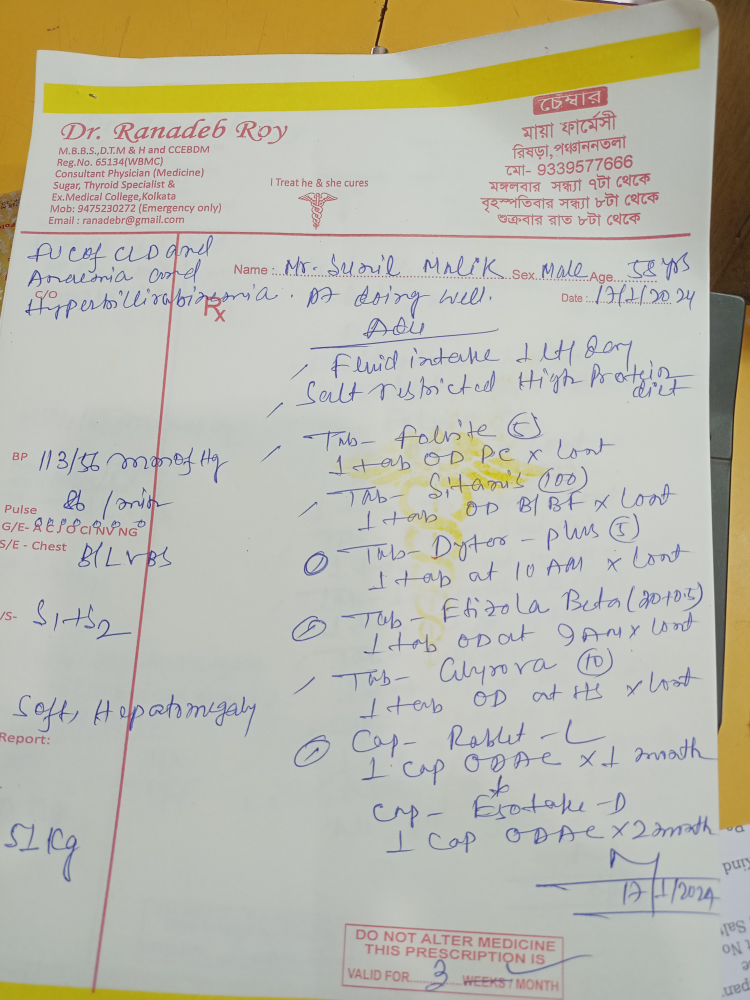 Dr. Ranadeb Roy
M.B.B.S.,D.T.M & H and CCEBDM
Reg.No. 65134(WBMC)
Consultant Physician (Medicine)
Sugar, Thyroid Specialist &
Ex.Medical College,Kolkata
Mob: 9475230272 (Emergency only)
Email : ranadebr@gmail.com
I Treat he & she cures
চেম্বার
মায়া ফার্মেসী
রিষড়া,পঞ্চাননতলা
মো- 9339577666
মঙ্গলবার সন্ধ্যা ৭টা থেকে
বৃহস্পতিবার সন্ধ্যা ৮টা থেকে
শুক্রবার রাত ৮টা থেকে
FUC of CLD and
Anaemia and
C/O
Hyperbillirabinemia. Pt doing well.
Name : Mr. Sunil Malik Sex Male Age 58 yrs
Date : 17/1/2024
Rx
Adv
Fluid intake 1 Lt/Day
Salt restricted High Protein
diet
Tab- Folvite (5)
1 tab OD PC x cont
Tab- Sitaris (100)
1 tab OD B/BF x cont
Tab- Dytor-plus (5)
1 tab at 10 AM x cont
Tab- Etizola Beta (20+0.5)
1 tab OD at 9AM x cont
Tab- (10)
1 tab OD at HS x cont
Cap- Rablet-L
1 cap ODAC x 1 month
Cap- Esotake-D
1 cap ODAC x 2 month
17/1/2024
BP 113/56 mm of Hg
Pulse 86 /min
G/E- A C J O CI NV NG
S/E - Chest B/L VBS
/S- S1+S2
Soft, Hepatomegaly
Report:
51 Kg
DO NOT ALTER MEDICINE
THIS PRESCRIPTION IS
VALID FOR 3 WEEKS / MONTH